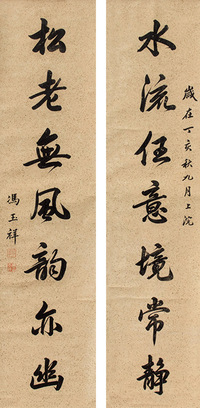 歲在丁亥秋九月上浣
水流任意境常静
松老無風韵亦幽
馮玉祥